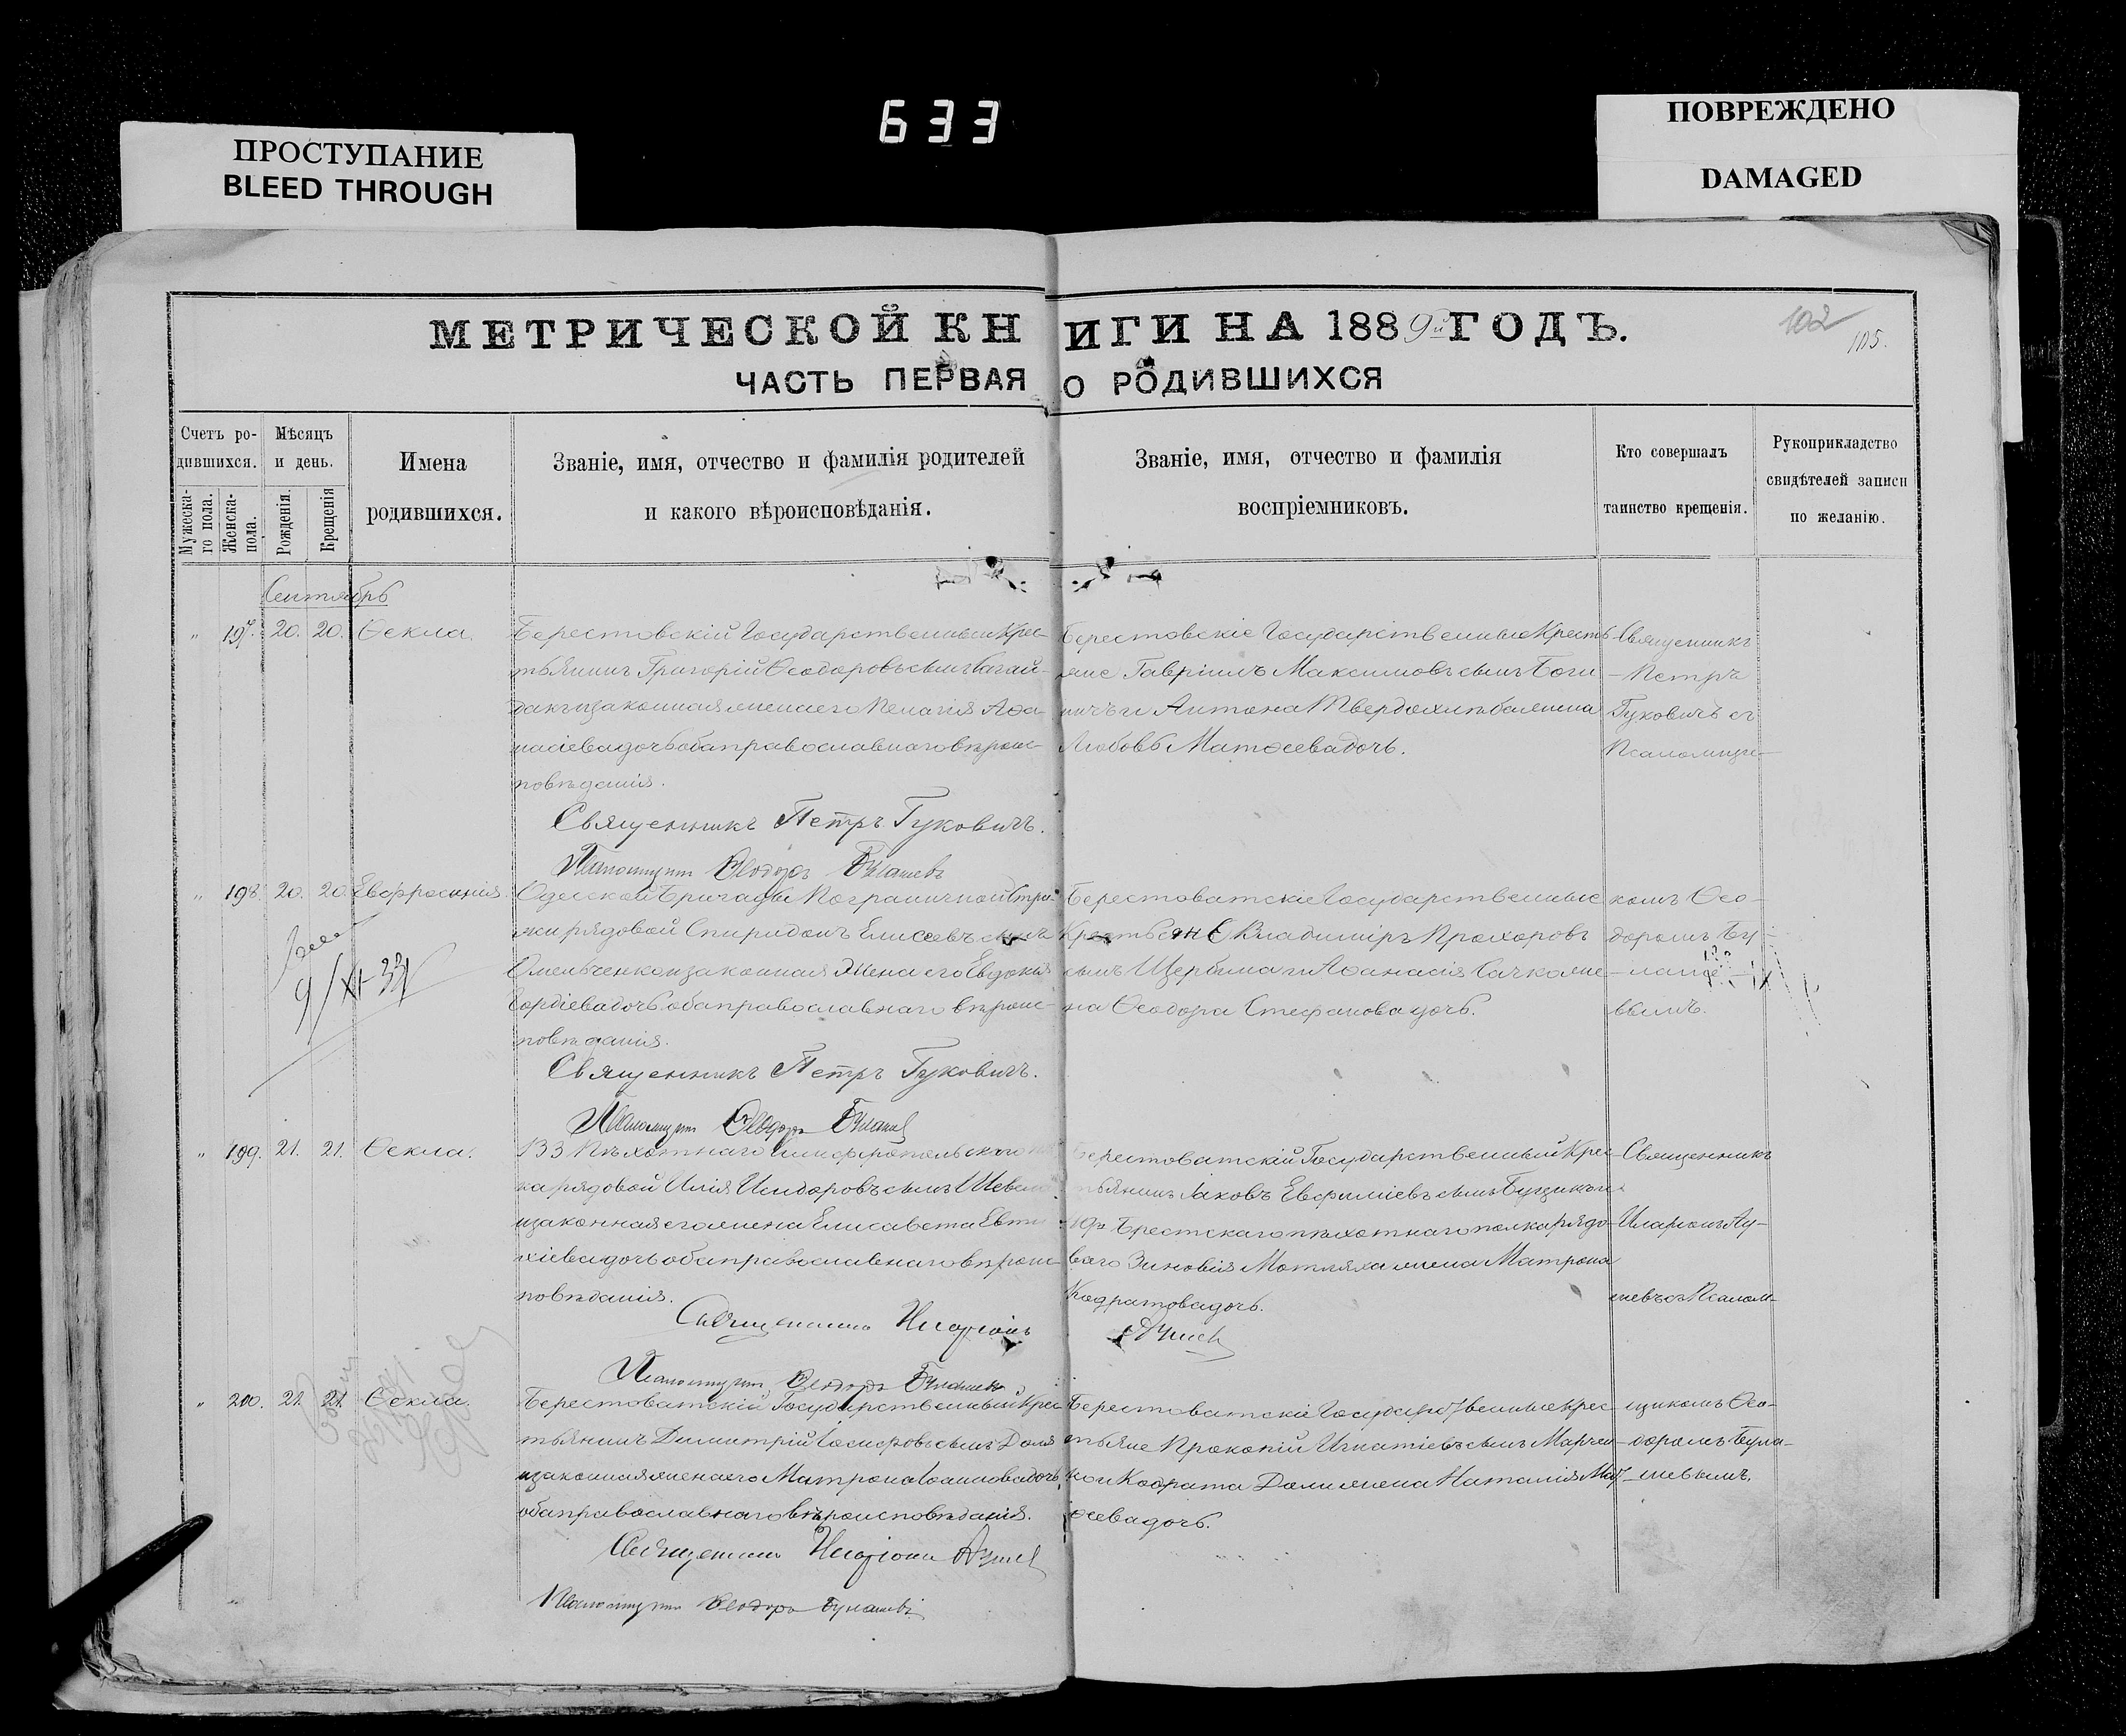 633
ПРОСТУПАНИЕ
BLEED THROUGH
ПОВРЕЖДЕНО
DAMAGED
МЕТРИЧЕСКОЙ КНИГИ НА 1889й ГОДЪ.
102
105.
ЧАСТЬ ПЕРВАЯ О РОДИВШИХСЯ
Счетъ родившихся.
Мужескаго пола.
Женска- пола.
Мѣсяцъ и день.
Рожденія.
Крещенія
Имена
родившихся.
Званіе, имя, отчество и фамилія родителей
и какого вѣроисповѣданія.
Званіе, имя, отчество и фамилія
воспріемниковъ.
Кто совершалъ
таинство крещенія.
Рукоприкладство
свидѣтелей записи
по желанію.
Сентябрь
" 197. 20. 20. Ѳекла.
Берестовскій Государственный Крес-
тьянинъ Григорій Ѳеодоровъ сынъ
законная жена его Пелагія Аѳа-
насіева дочь оба православнаго вѣроис-
повѣданія.
Священникъ Петръ Гуковичъ.
Псаломщикъ Ѳеодоръ Булашевъ
Берестовскіе Государственные Кресть-
яне Гавріилъ Максимовъ сынъ
и Антона Твердохлѣба жена
Любовь Матѳеева дочь.
Священникъ
Петръ
Гуковичъ съ
Псаломщи-
" 198. 20. 20. Евфросинія.
Одесской Бригады Пограничной Стра-
жи рядовой Спиридонъ Елисеевъ сынъ
Омельченко и законная жена его Евдокія
Гордіева дочь оба православнаго вѣроис-
повѣданія.
Священникъ Петръ Гуковичъ.
Псаломщикъ Ѳеодоръ Булашевъ
Берестоватскіе Государственные
Крестьяне Владиміръ Прохоровъ
сынъ Щербина и Аѳанасія Сачко же-
на Ѳеодора Стефанова дочь.
комъ Ѳео-
доромъ Бу-
лаше-
вымъ.
9/XI-33
" 199. 21. 21. Ѳекла.
133 Пѣхотнаго Симферопольскаго
ка рядовой Илія Исидоровъ сынъ
и законная его жена Елисавета Евти-
хіева дочь оба православнаго вѣроис-
повѣданія.
Священникъ Иларіонъ
Псаломщикъ Ѳеодоръ Булашевъ
Берестоватскій Государственный Крес-
тьянинъ Іаковъ Евфиміевъ сынъ
Брестскаго пѣхотнаго полка рядо-
ваго Зиновія жена Матрона
Кодратова дочь.
Священникъ
Иларіонъ
Псалом-
" 200. 21. 21. Ѳекла.
Берестоватскій Государственный Крес-
тьянинъ Димитрій Іосифовъ сынъ Доля
и законная жена его Матрона Іоаннова дочь,
оба православнаго вѣроисповѣданія.
Священникъ Иларіонъ
Псаломщикъ Ѳеодоръ Булашевъ
Берестоватскіе Государственные Крес-
тьяне Прокопій Игнатіевъ сынъ Марчен-
ко и Кодрата Доли жена Наталія Мат-
ѳеева дочь.
щикомъ Ѳео-
доромъ Була-
шевымъ.